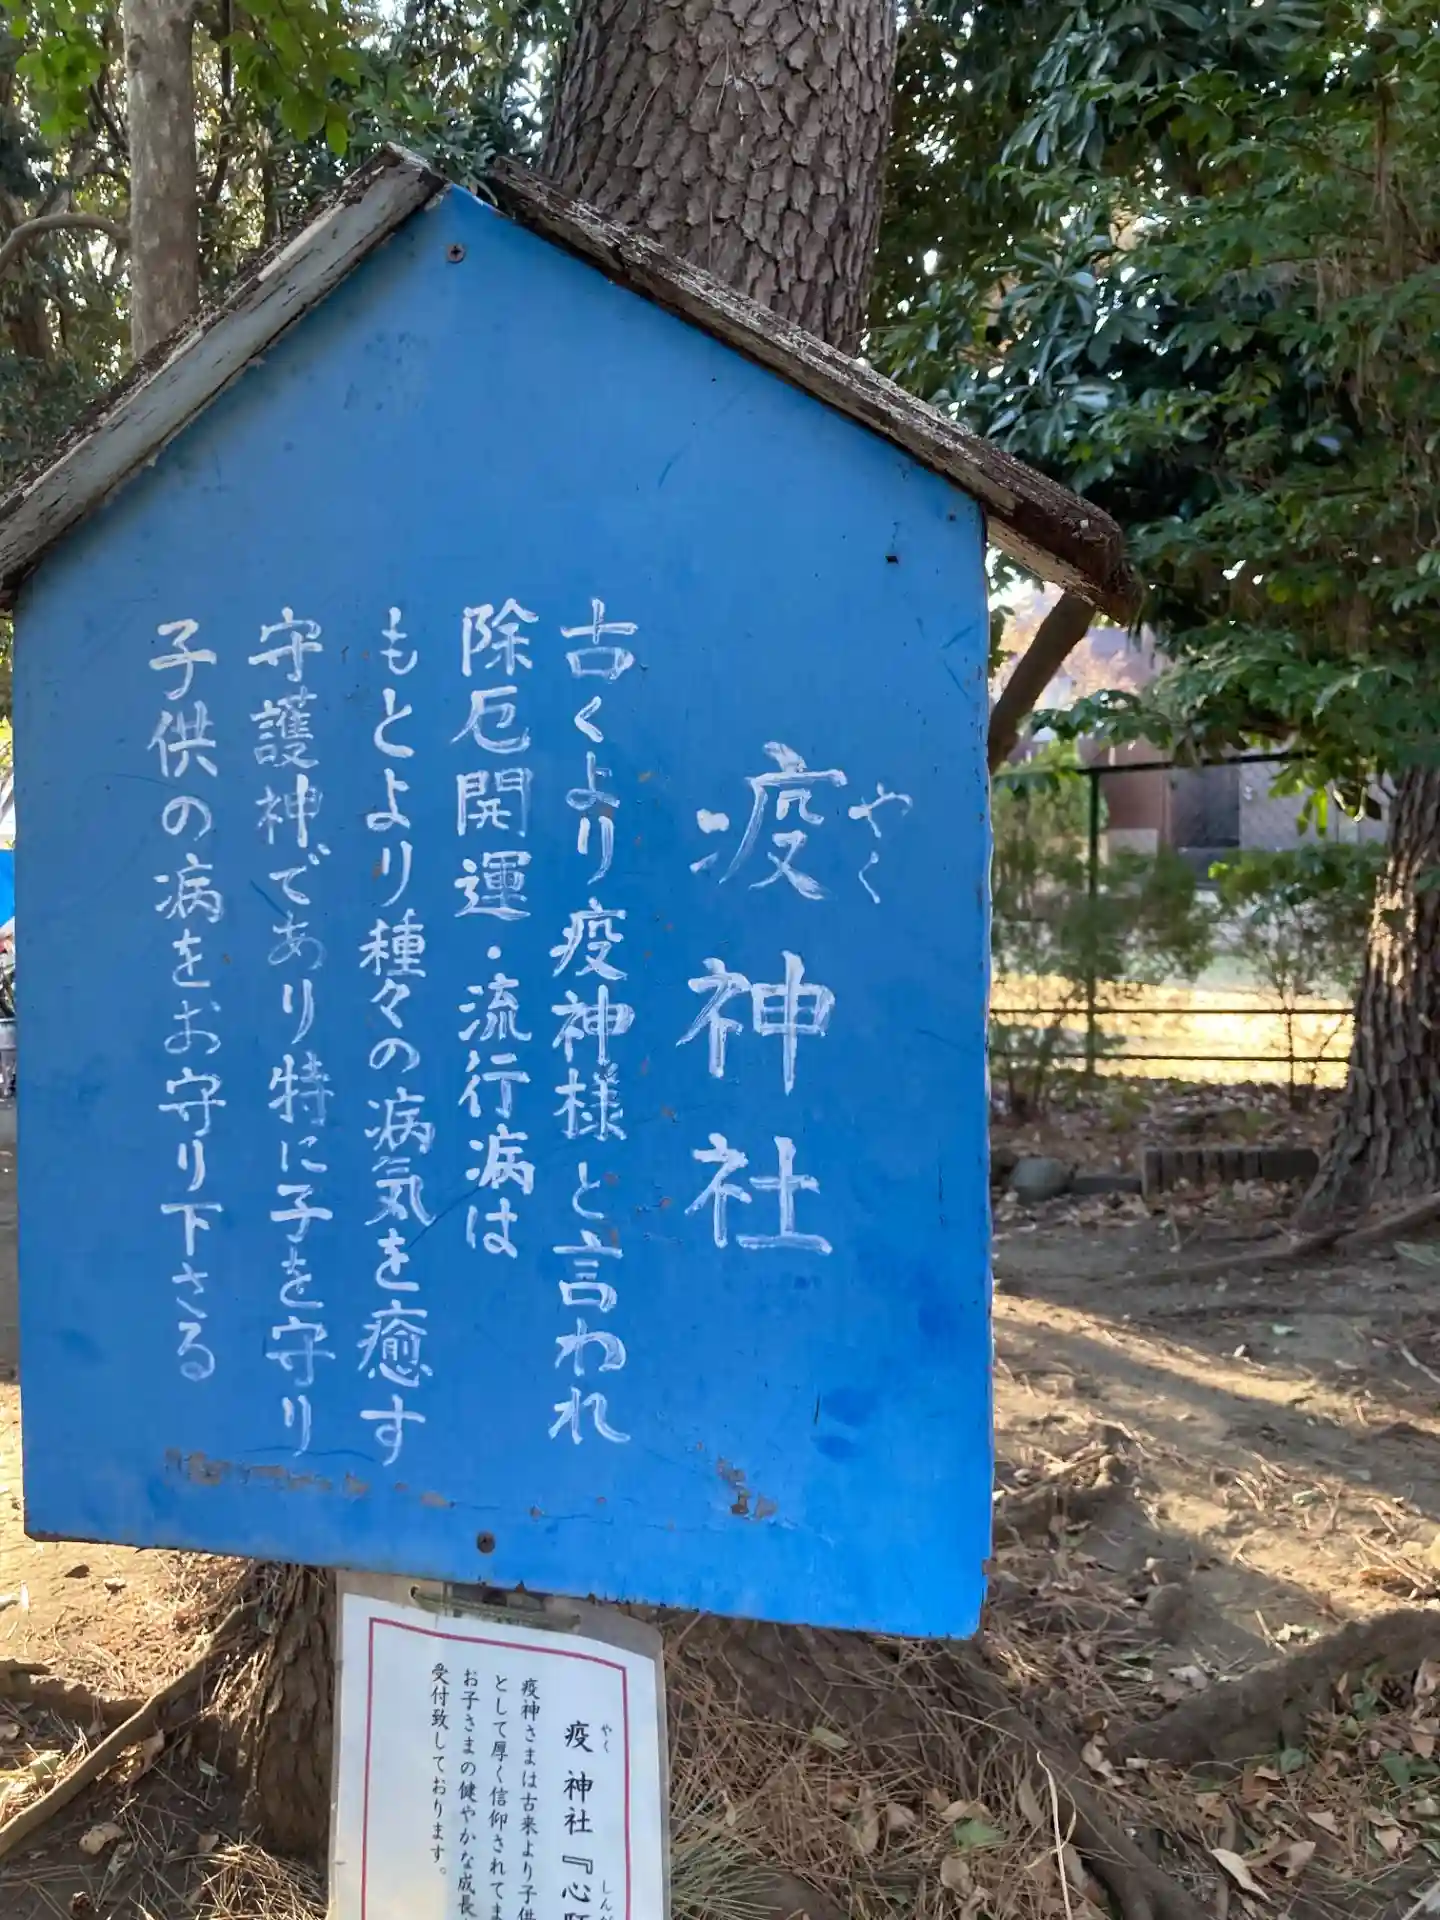 疫神社
やく
古くより疫神様と言われ
除厄開運・流行病は
もとより種々の病気を癒す
守護神であり特に子を守り
子供の病をお守り下さる
疫神社『心
やく
しん
疫神さまは古来より子供
として厚く信仰されてま
お子さまの健やかな成長
受付致しております。